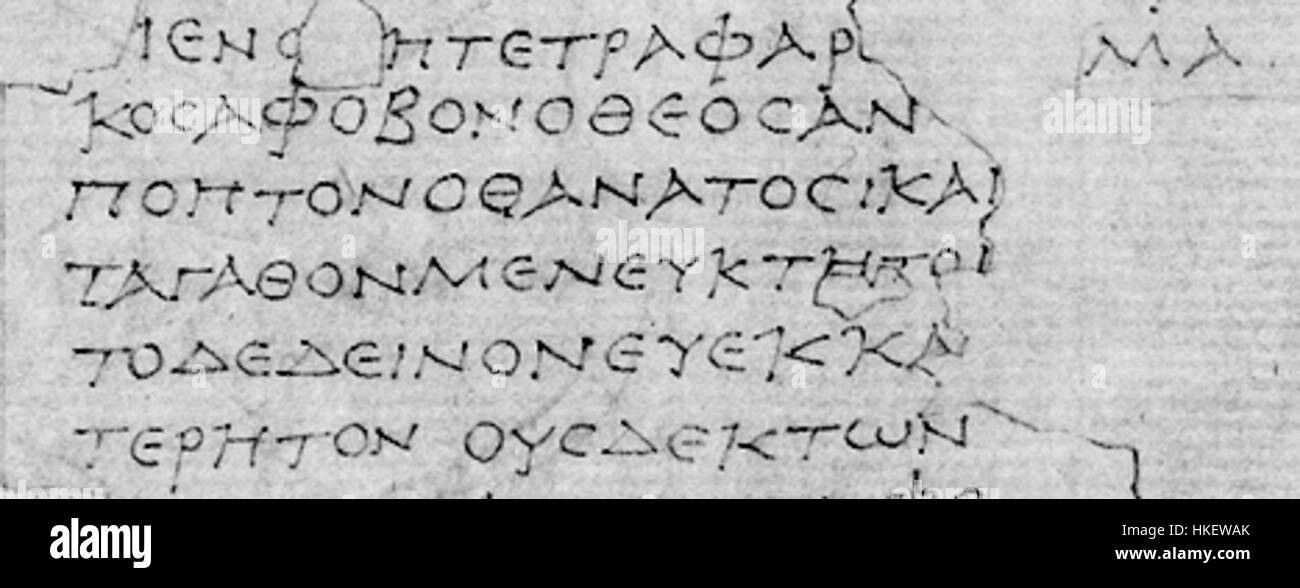 ΙΕΝΟ ΗΤΕΤΡΑΦΑΡ ΜΑ
ΚΟϹΑΦΟΒΟΝΟΘΕΟϹΑΝ
ΠΟΗΤΟΝΟΘΑΝΑΤΟϹΙΚΑΙ
ΤΑΓΑΘΟΝΜΕΝΕΥΚΤΗΤΟΙ
ΤΟΔΕΔΕΙΝΟΝΕΥΕΚΚΑ
ΤΕΡΗΤΟΝ ΟΥϹΔΕΚΤΩΝ
alamy
Image ID: HKEWAK
www.alamy.com